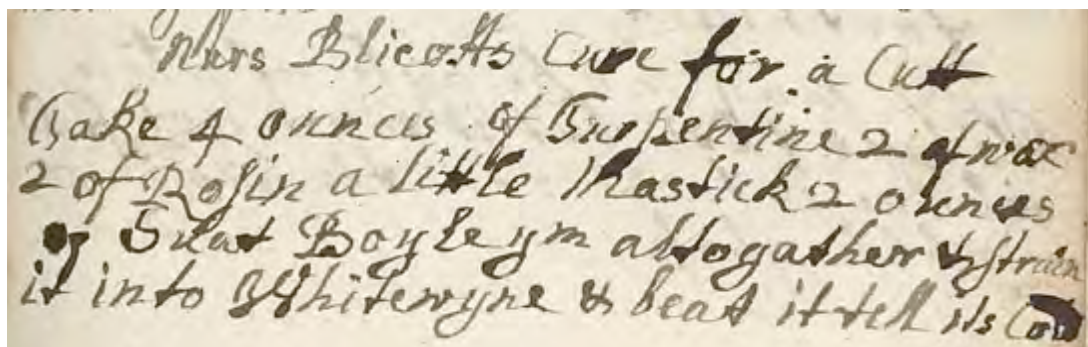 Nurs Blicotts Cure for a Cutt
Take 4 ounces of Turpentine 2 of wax
2 of Rosin a little Mastick 2 ounces
of Suat Boyle ym altogather & strain
it into Whitewyne & beat it tell its Cold